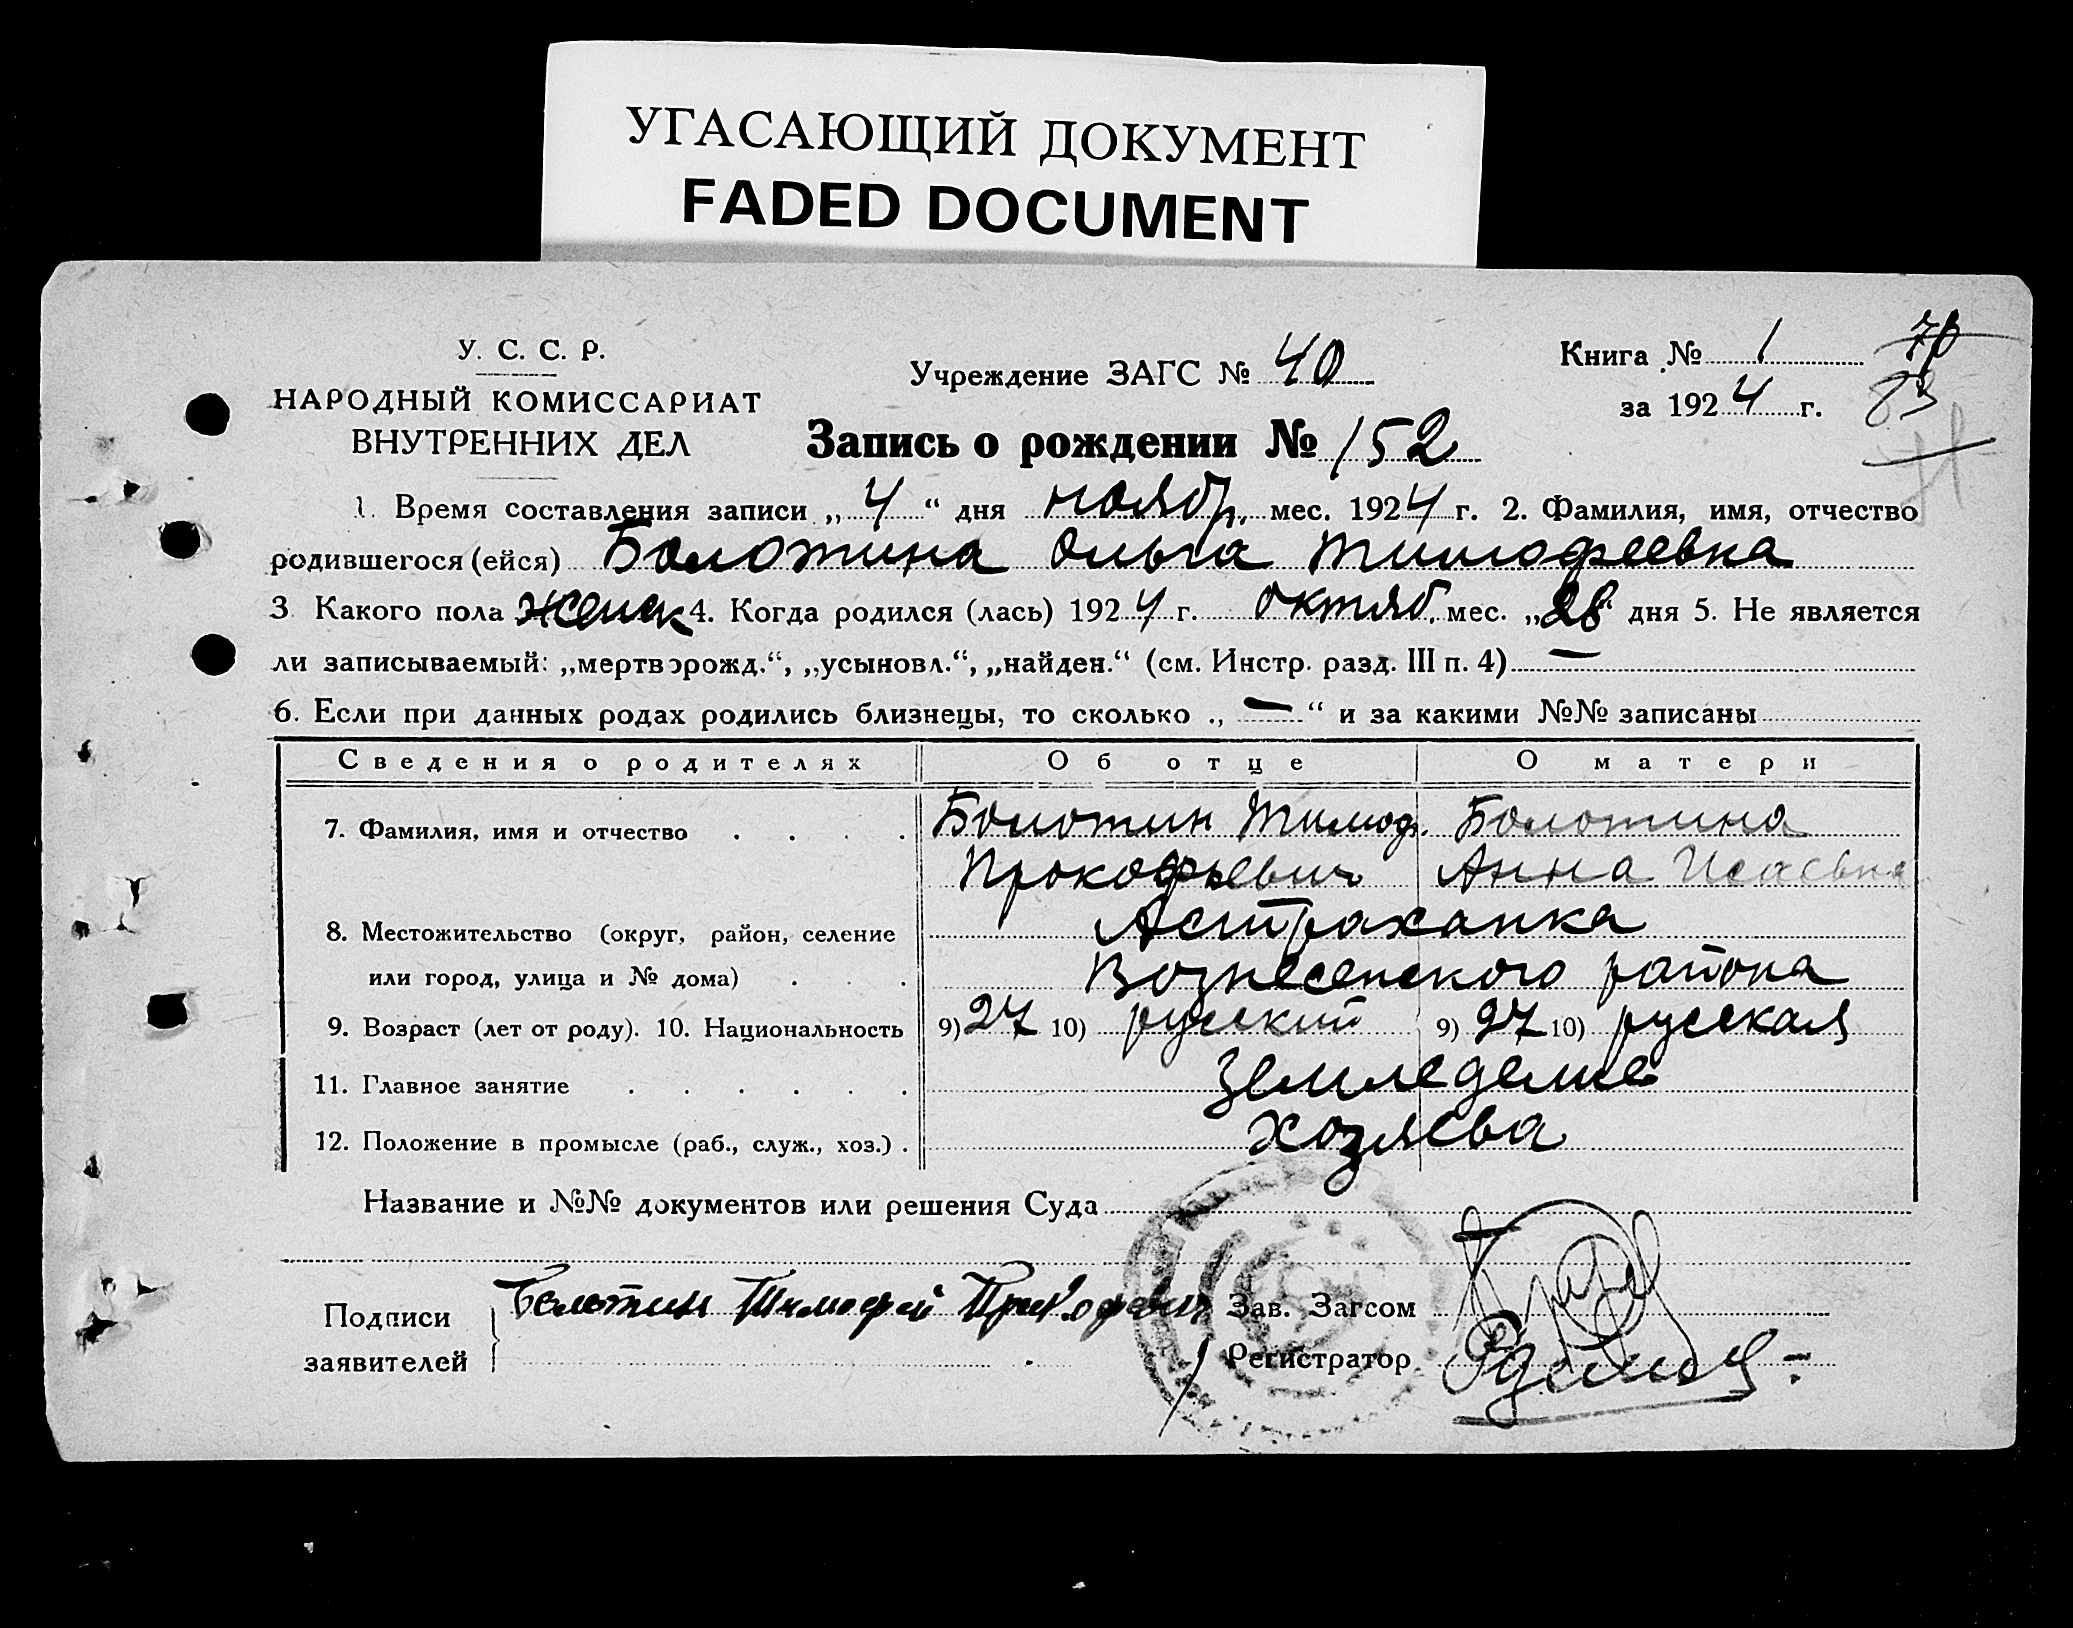 УГАСАЮЩИЙ ДОКУМЕНТ
FADED DOCUMENT
У. С. С. Р.
НАРОДНЫЙ КОМИССАРИАТ
ВНУТРЕННИХ ДЕЛ
Учреждение ЗАГС № 40
Книга № 1
за 1924 г.
83
Запись о рождении № 152
1. Время составления записи „4“ дня ноябр. мес. 1924 г. 2. Фамилия, имя, отчество
родившегося (ейся) Болотина Ольга Тимофеевна
3. Какого пола женск 4. Когда родился (лась) 1924 г. октяб. мес. „28“ дня 5. Не является
ли записываемый: „мертворожд.“, „усыновл.“, „найден.“ (см. Инстр. разд. III п. 4) —
6. Если при данных родах родились близнецы, то сколько „—“ и за какими №№ записаны
Сведения о родителях Об отце О матери
7. Фамилия, имя и отчество Болотин Тимоф. Болотина
Прокофьевич Анна Исаевна
8. Местожительство (округ, район, селение Астраханка
или город, улица и № дома) Вознесенского района
9. Возраст (лет от роду). 10. Национальность 9) 27 10) русский 9) 27 10) русская
11. Главное занятие Земледелие
12. Положение в промысле (раб., служ., хоз.) хозяева
Название и №№ документов или решения Суда
Подписи Болотин Тимофей Прокофевич Зав. Загсом
заявителей Регистратор